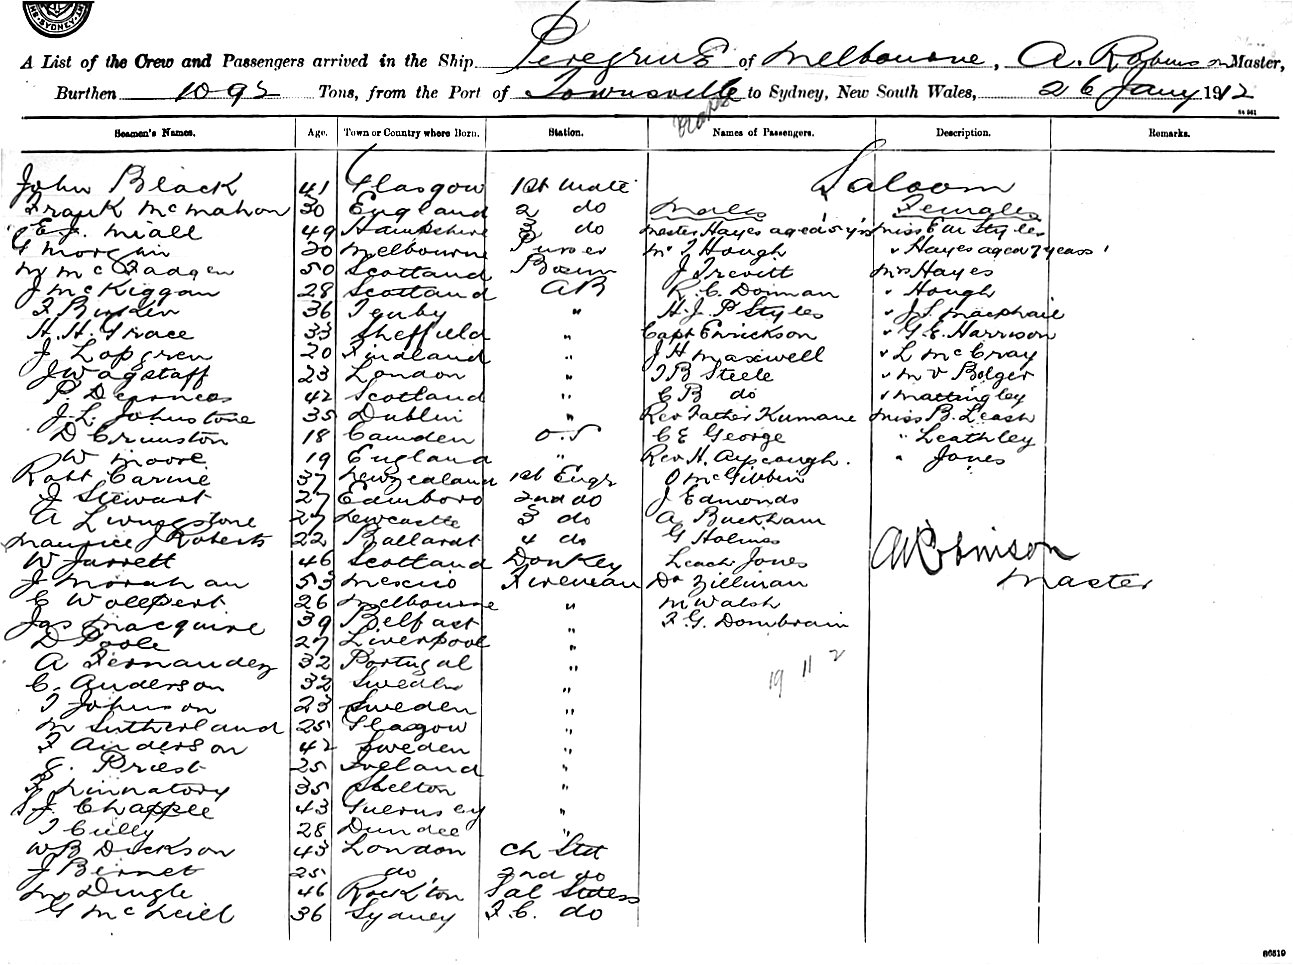 SYDNEY
A List of the Crew and Passengers arrived in the Ship Peregrine of Melbourne, A. Robinson Master,
Burthen 1092 Tons, from the Port of Townsville to Sydney, New South Wales, 26 Jany 1912
Seamen's Names. Age. Town or Country where Born. Station. Names of Passengers. Description. Remarks.
Saloom
John Black 41 Glasgow 1st mate
Frank McMahon 30 England 2 do Males Females
E. J. Miall 49 Hampshire 3 do Master Hayes aged 5 yrs Miss E M Styles
G Morgan 30 Melbourne Purser Mr T Hough " Hayes aged 7 years
W McFadgen 50 Scotland Bosun J Trevitt Mrs Hayes
J McKiggan 28 Scotland AB R. C. Dorman " Hough
F 36 Tenby " H. J. P Styles " J. S. Macphail
H. H. Grace 33 Sheffield " Capt Erickson " G. E. Harrison
J Lofgren 20 Findland " J H Maxwell " L McCray
J Wagstaff 23 London " T B Steele " M V Bolger
P. 42 Scotland " C B do " Mattingley
J. L. Johnstone 35 Dublin " Rev Father Kumane Miss B. Leash
D Crimston 18 Camden O.S C E George " Leathley
W Moore 19 England " Rev H. Ayscough. " Jones
Robt Carine 37 New Zealand 1st Engr O McGibbin
J Stewart 27 Edinboro 2nd do J Edmonds
A Livingstone 27 Newcastle 3 do A Buckham
Maurice J Roberts 22 Ballarat 4 do G Holmes
W Jarrett 46 Scotland Donkey Leach Jones A Robinson
J Morahan 53 Mexico Fireman Dr Zillman Master
C Wollpert 26 Melbourne " M Walsh
Jas Macquire 39 Belfast " F. G. Dombrain
D Poole 27 Liverpool "
A Fernandez 32 Portugal " 19 11 2
C. Anderson 32 Sweden "
J Johnson 23 Sweden "
M Sutherland 25 Glasgow "
F Anderson 42 Sweden "
E. Priest 25 England "
F Kinnatory 35 Shelton "
J. Chapple 43 Guernsey "
T Cully 28 Dundee "
W B Dickson 43 London Ch Std
J Bennet 25 do 2nd do
M Dingle 46 Rock'ton Sal Stdess
G McNeill 36 Sydney F. C. do
86519